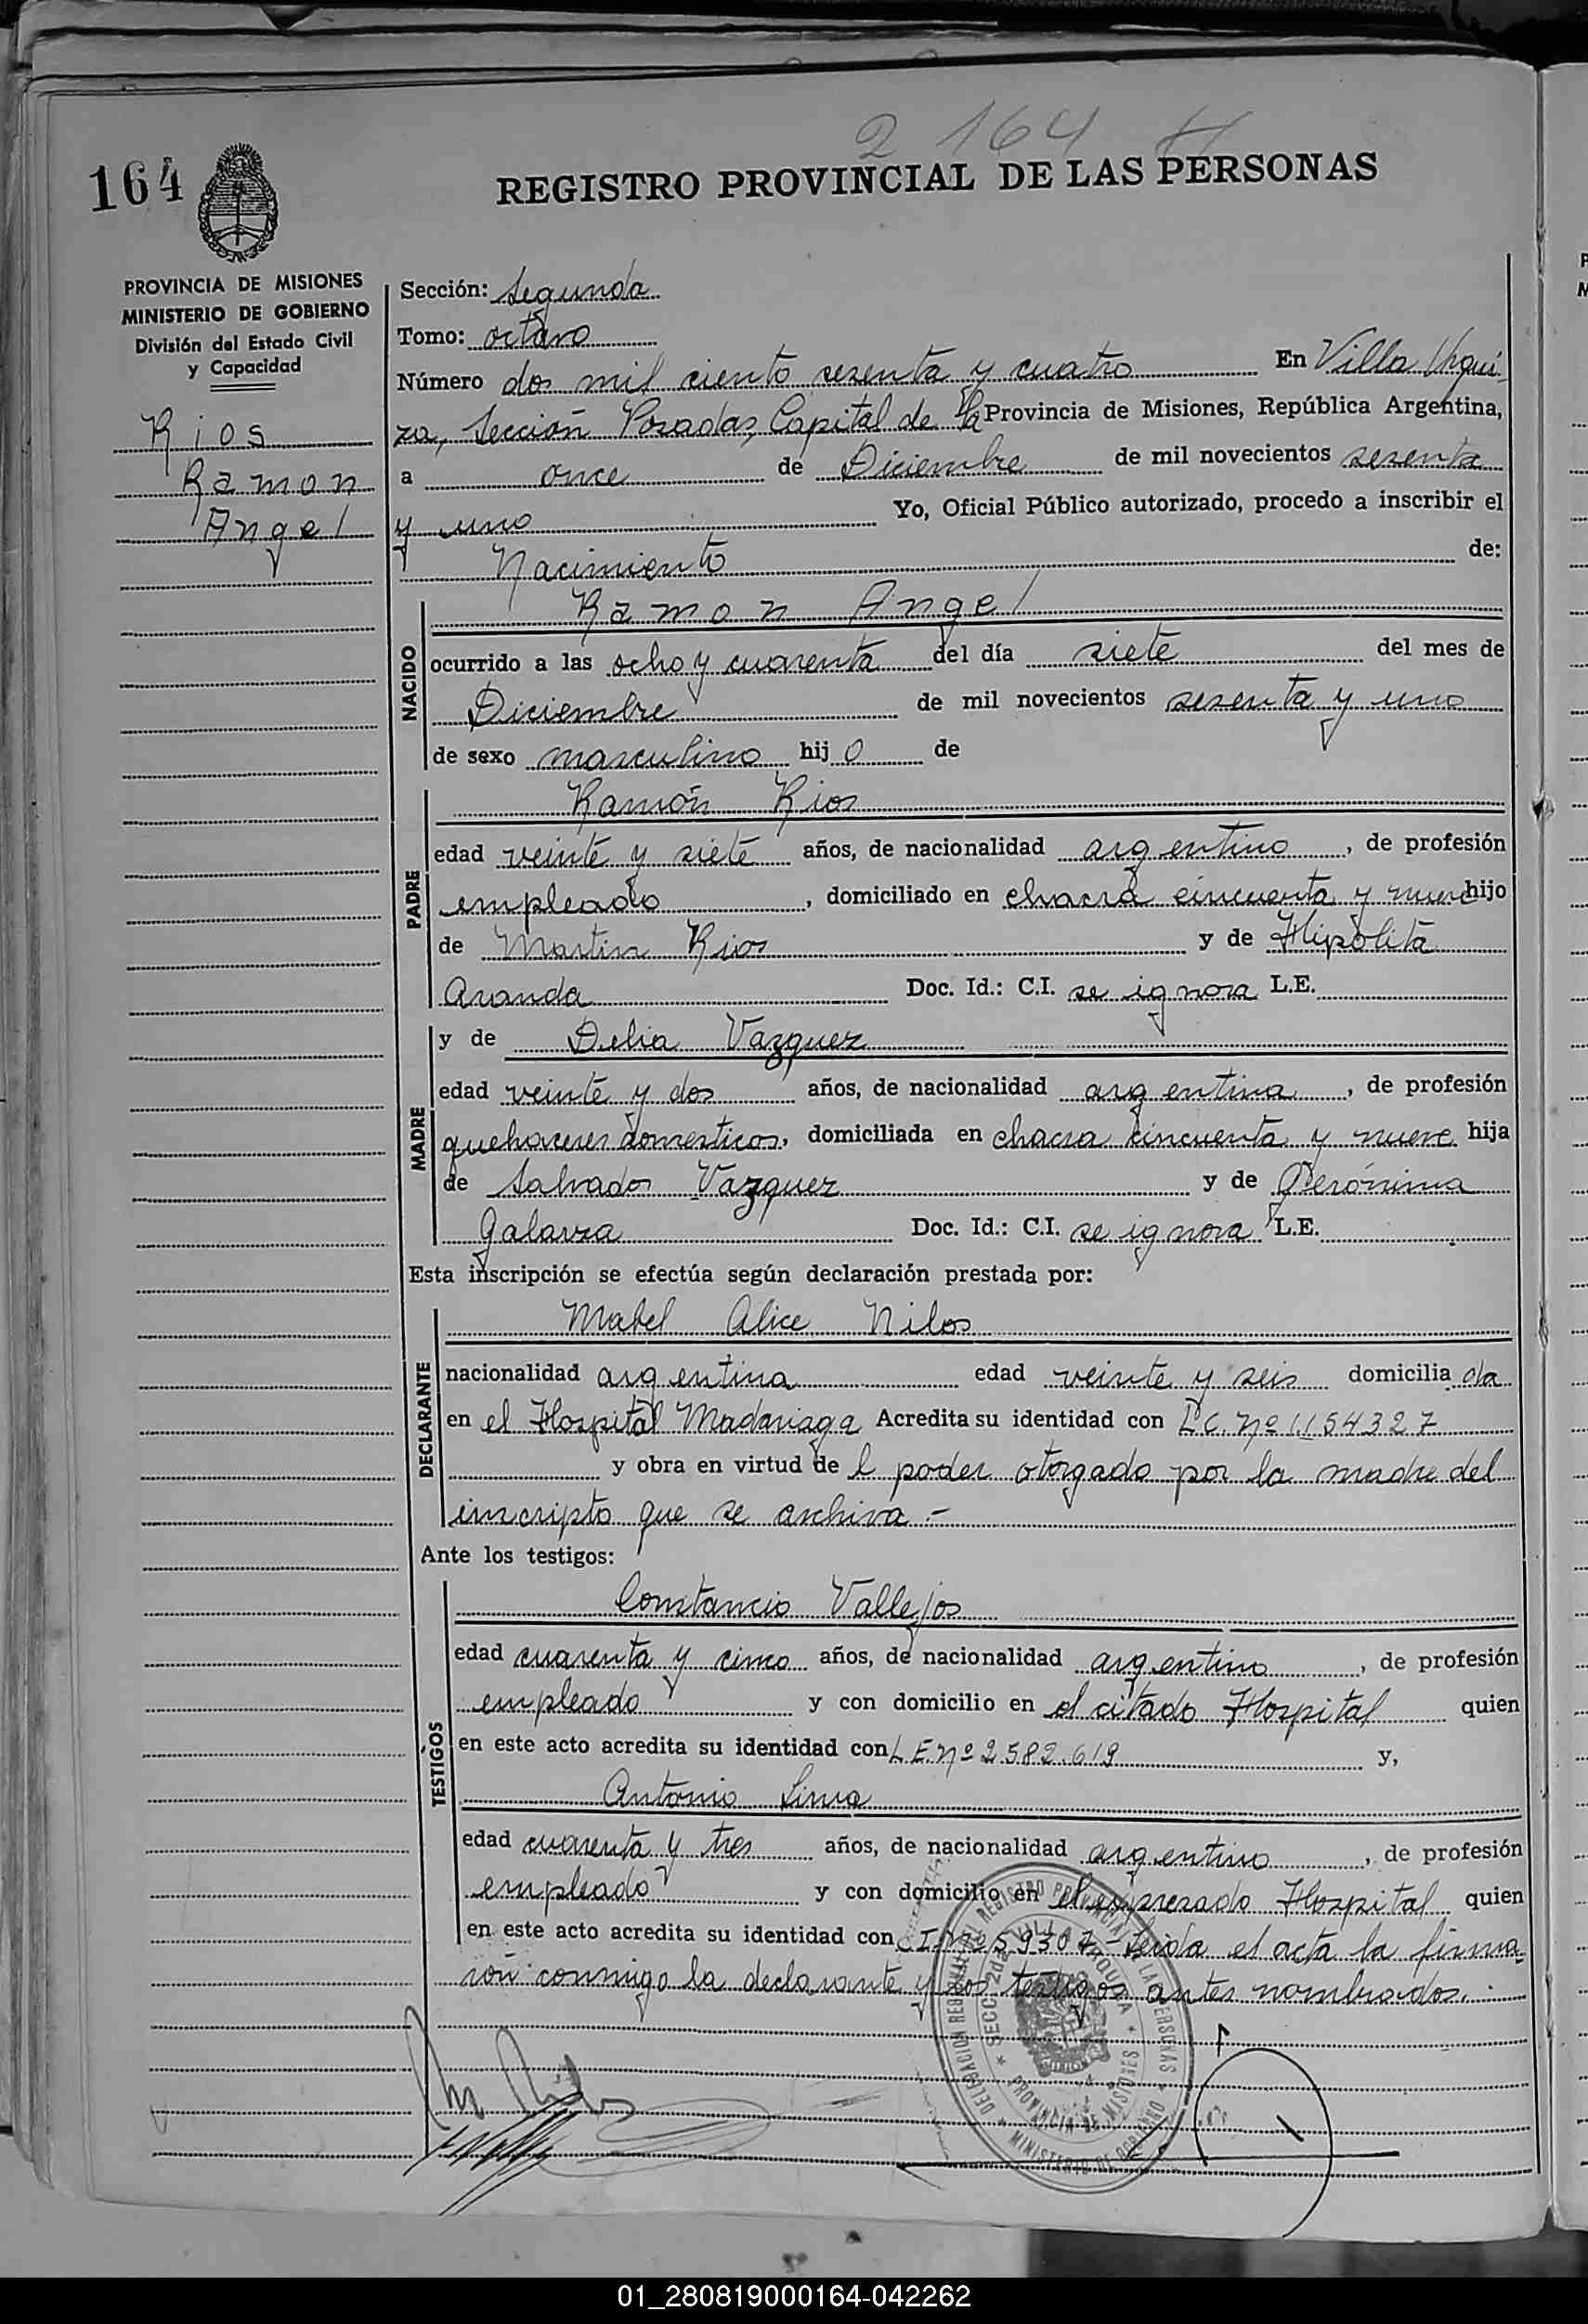 2 164
164
REGISTRO PROVINCIAL DE LAS PERSONAS
PROVINCIA DE MISIONES
MINISTERIO DE GOBIERNO
División del Estado Civil
y Capacidad
Rios
Ramon
Angel
Sección: Segunda
Tomo: octavo
Número dos mil ciento sesenta y cuatro En Villa Urqui-
za, Sección Posadas, Capital de la Provincia de Misiones, República Argentina,
a once de Diciembre de mil novecientos sesenta
y uno Yo, Oficial Público autorizado, procedo a inscribir el
Nacimiento de:
NACIDO
Ramon Angel
ocurrido a las ocho y cuarenta del día siete del mes de
Diciembre de mil novecientos sesenta y uno
de sexo masculino hij o de
PADRE
Ramón Rios
edad veinte y siete años, de nacionalidad argentino, de profesión
empleado, domiciliado en chacra cincuenta y nueve hijo
de Martin Rios y de Hipólita
Aranda Doc. Id.: C.I. se ignora L.E.
MADRE
y de Delia Vazquez
edad veinte y dos años, de nacionalidad argentina, de profesión
quehaceres domesticos, domiciliada en chacra cincuenta y nueve hija
de Salvador Vazquez y de Gerónima
Galarza Doc. Id.: C.I. se ignora L.E.
Esta inscripción se efectúa según declaración prestada por:
DECLARANTE
Mabel Alice Nilos
nacionalidad argentina edad veinte y seis domicilia da
en el Hospital Madariaga Acredita su identidad con L.C. Nº 1.154327
y obra en virtud de l poder otorgado por la madre del
inscripto que se archiva.-
Ante los testigos:
TESTIGOS
Constancio Vallejos
edad cuarenta y cinco años, de nacionalidad argentino, de profesión
empleado y con domicilio en el citado Hospital quien
en este acto acredita su identidad con L.E. Nº 2.582.619 y,
Antonio Lima
edad cuarenta y tres años, de nacionalidad argentino, de profesión
empleado y con domicilio en el expresado Hospital quien
en este acto acredita su identidad con C.I. Nº 59307 - Leida el acta la firma
ron conmigo la declarante y los testigos antes nombrados.-
DELEGACION REGIONAL DEL REGISTRO PROVINCIAL DE LAS PERSONAS
MINISTERIO DE GOBIERNO
SECC. 2da. VILLA URQUIZA
PROVINCIA DE MISIONES
01_280819000164-042262